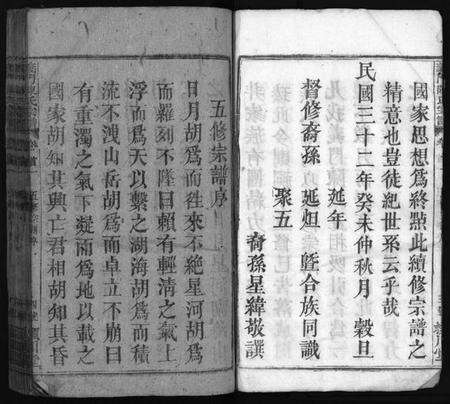 國家思想爲終點此續修宗譜之
精意也豈徒紀世系云乎哉
民國三十二年癸未仲秋月 穀旦
延年
督修裔孫 延烜 暨合族同識
聚五
裔孫星緯敬譔
五修宗譜序
日月胡爲而往來不絕星河胡爲
而羅刻不墜曰賴有輕清之氣上
浮而爲天以繫之湖海胡爲而積
流不洩山岳胡爲而卓立不崩曰
有重濁之氣下凝而爲地以載之
國家胡知其興亡君相胡知其昏